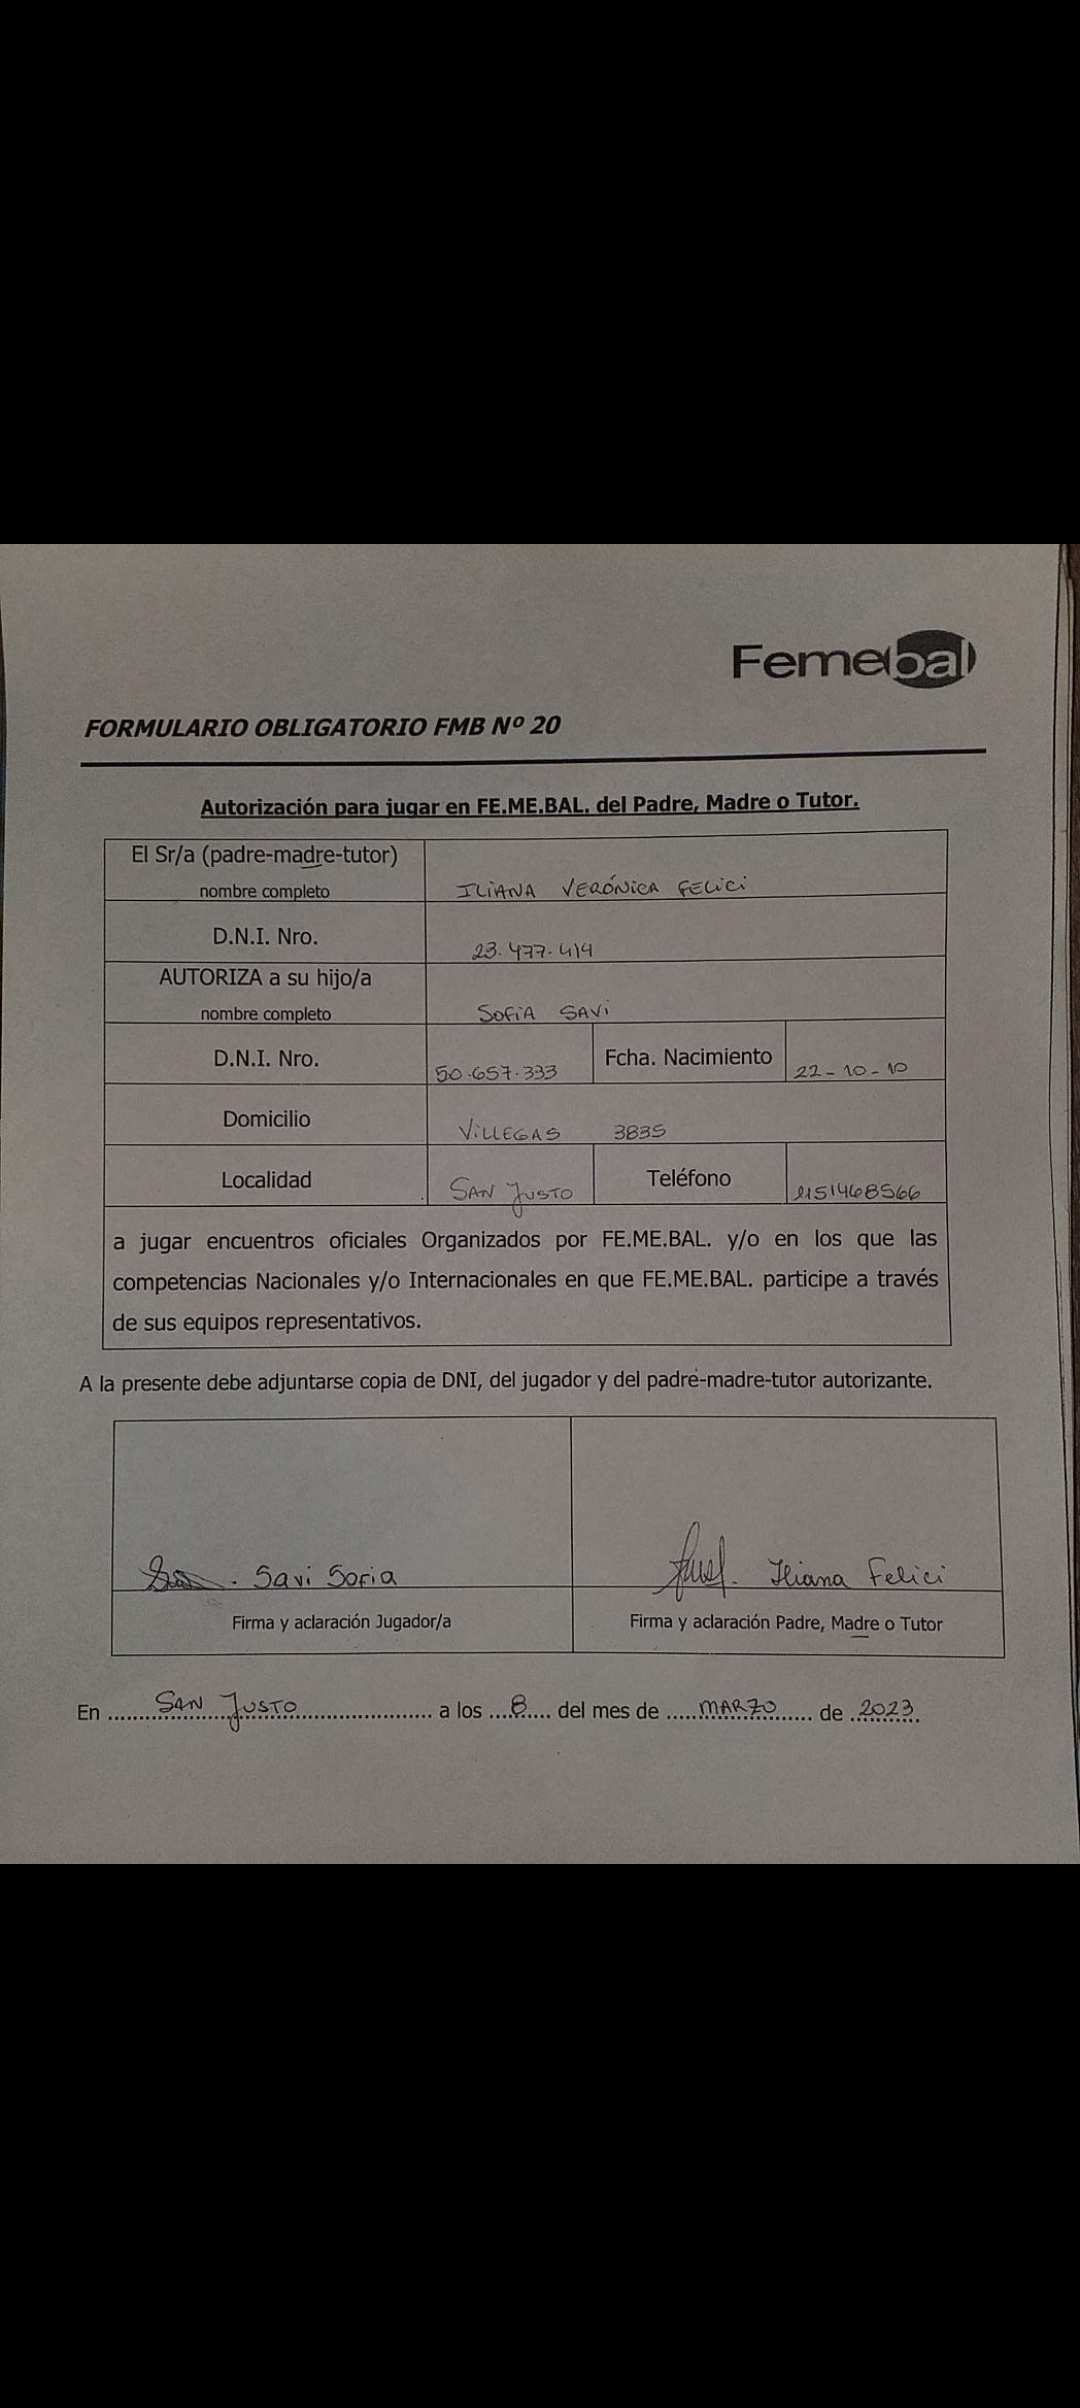 Femebal
FORMULARIO OBLIGATORIO FMB Nº 20
Autorización para jugar en FE.ME.BAL. del Padre, Madre o Tutor.
El Sr/a (padre-madre-tutor)
nombre completo
ILIANA VERÓNICA FELICI
D.N.I. Nro.
23.477.414
AUTORIZA a su hijo/a
nombre completo
SOFIA SAVI
D.N.I. Nro.
50.657.333
Fcha. Nacimiento
22-10-10
Domicilio
VILLEGAS 3835
Localidad
SAN JUSTO
Teléfono
1151468566
a jugar encuentros oficiales Organizados por FE.ME.BAL. y/o en los que las
competencias Nacionales y/o Internacionales en que FE.ME.BAL. participe a través
de sus equipos representativos.
A la presente debe adjuntarse copia de DNI, del jugador y del padre-madre-tutor autorizante.
Savi Sofia
Iliana Felici
Firma y aclaración Jugador/a
Firma y aclaración Padre, Madre o Tutor
En SAN JUSTO a los 8 del mes de MARZO de 2023